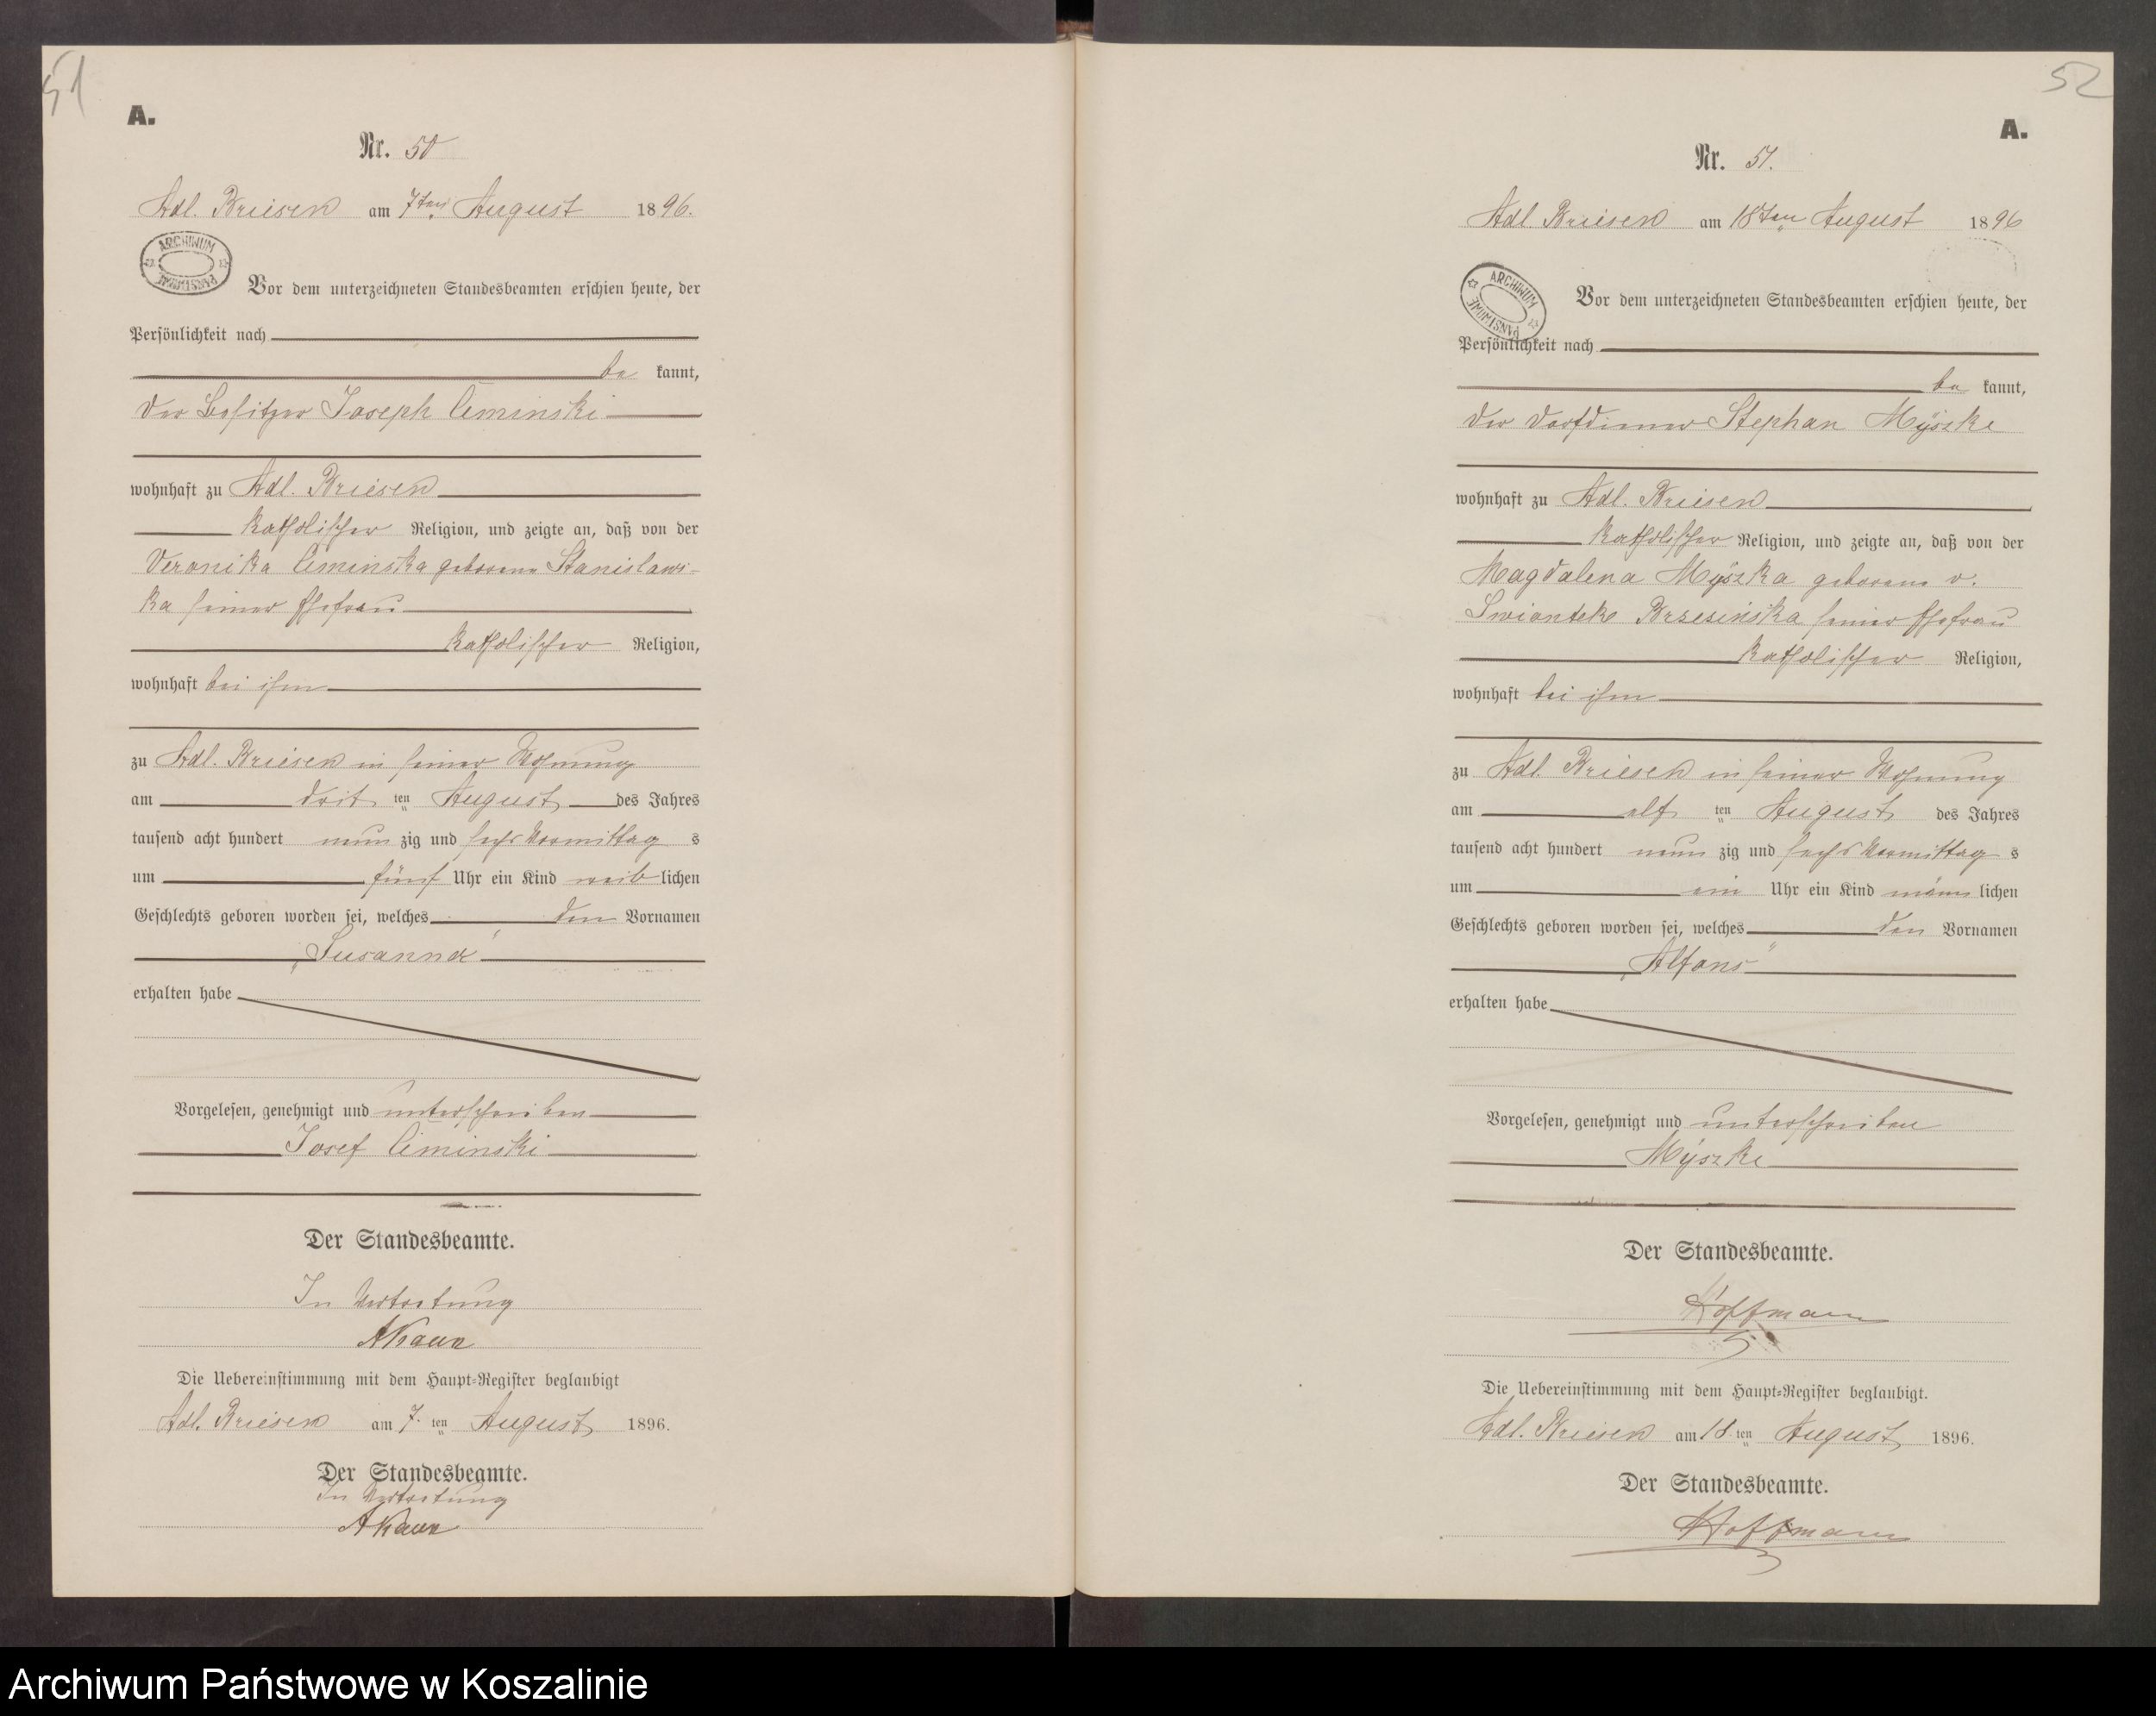 51
A.
Nr. 50
Adl. Briesen am 7ten August 1896.
ARCHIWUM PAŃSTWOWE
Vor dem unterzeichneten Standesbeamten erschien heute, der
Persönlichkeit nach
be kannt,
der Besitzer Joseph Ciminski
wohnhaft zu Adl. Briesen
katholischer Religion, und zeigte an, daß von der
Veronika Ciminska geborene Stanislaws-
ka seiner Ehefrau
katholischer Religion,
wohnhaft bei ihm
zu Adl. Briesen in seiner Wohnung
am drit ten August des Jahres
tausend acht hundert neun zig und sechs Vormittag s
um fünf Uhr ein Kind weib lichen
Geschlechts geboren worden sei, welches den Vornamen
„Susanna"
erhalten habe
Vorgelesen, genehmigt und unterschrieben
Josef Ciminski
Der Standesbeamte.
In Vertretung
Die Uebereinstimmung mit dem Haupt-Register beglaubigt
Adl. Briesen am 7. ten August 1896.
Der Standesbeamte.
In Vertretung
52
A.
Nr. 51.
Adl. Briesen am 18ten August 1896
ARCHIWUM PAŃSTWOWE
Vor dem unterzeichneten Standesbeamten erschien heute, der
Persönlichkeit nach
be kannt,
der Dorfdiener Stephan Myszke
wohnhaft zu Adl. Briesen
katholischer Religion, und zeigte an, daß von der
Magdalena Myszka geborene v.
Swiontek Brzesinska seiner Ehefrau
katholischer Religion,
wohnhaft bei ihm
zu Adl. Briesen in seiner Wohnung
am elf ten August des Jahres
tausend acht hundert neun zig und sechs Vormittag s
um ein Uhr ein Kind männ lichen
Geschlechts geboren worden sei, welches den Vornamen
„Alfons"
erhalten habe
Vorgelesen, genehmigt und unterschrieben
Myszke
Der Standesbeamte.
Hoffmann
Die Uebereinstimmung mit dem Haupt-Register beglaubigt.
Adl. Briesen am 18 ten August 1896.
Der Standesbeamte.
Hoffmann
Archiwum Państwowe w Koszalinie